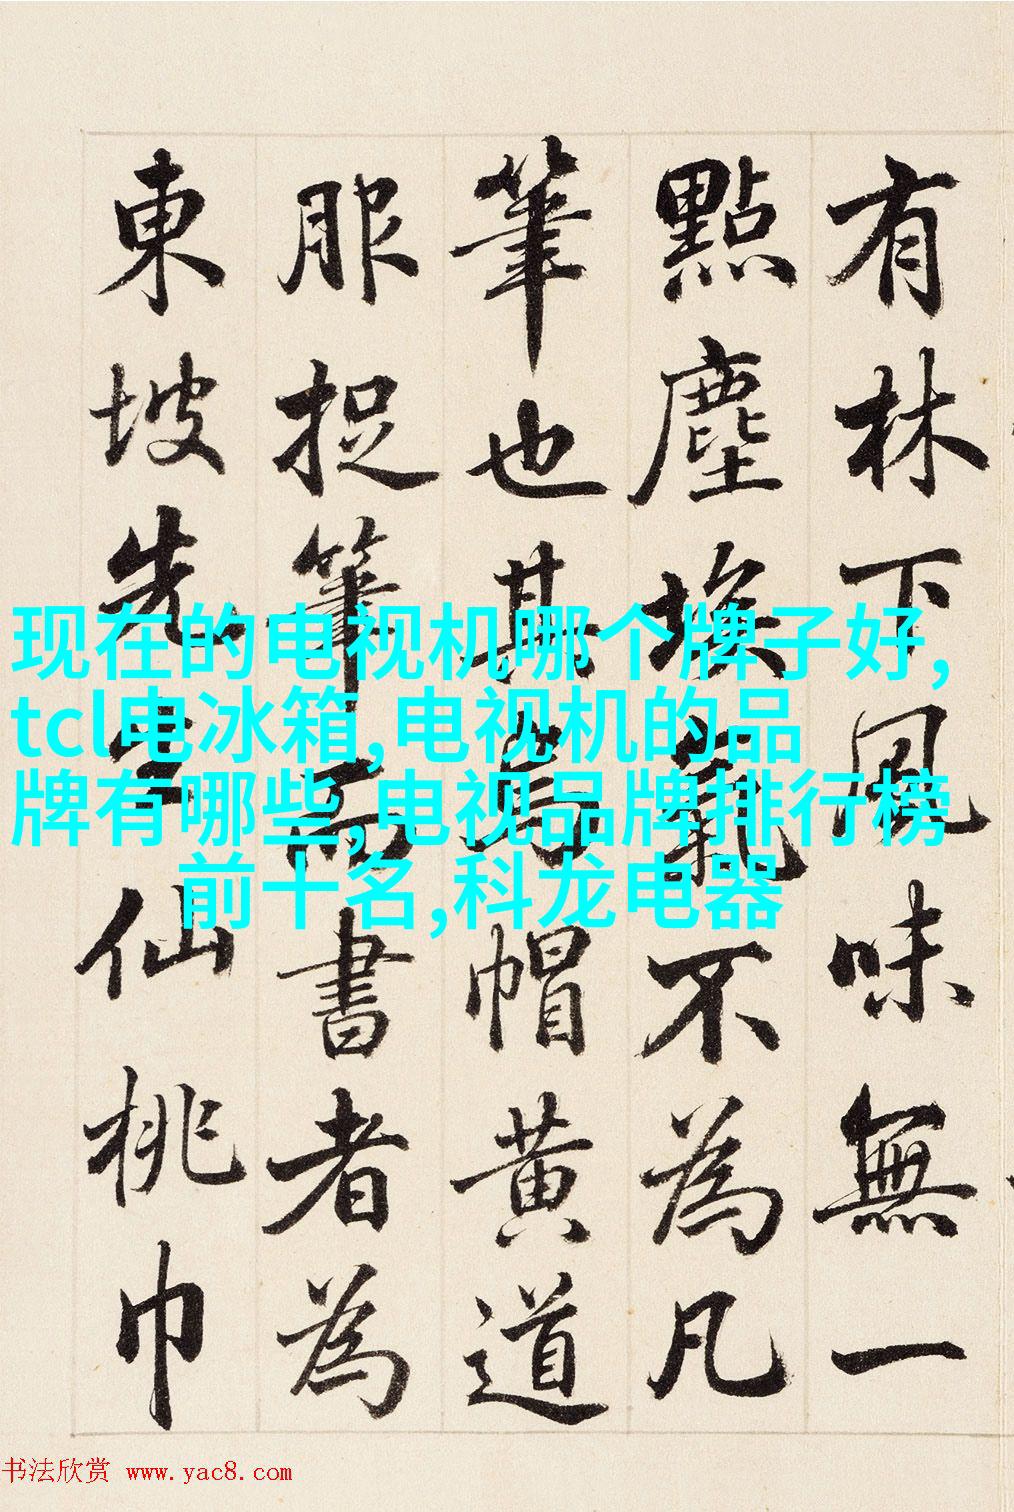 有林下風味無一
點塵埃氣不為凡
筆也其烏帽黃道
服捉筆而書者為
東坡先生仙桃巾
现在的电视机哪个牌子好,
tcl电冰箱,电视机的品
牌有哪些,电视品牌排行榜
前十名,科龙电器
书法欣赏 www.yac8.com